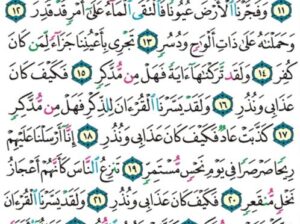 ١١ وَفَجَّرْنَا ٱلْأَرْضَ عُيُونًا فَٱلْتَقَى ٱلْمَآءُ عَلَىٰٓ أَمْرٍ قَدْ قُدِرَ ١٢
وَحَمَلْنَٰهُ عَلَىٰ ذَاتِ أَلْوَٰحٍ وَدُسُرٍ ١٣ تَجْرِى بِأَعْيُنِنَا جَزَآءً لِّمَن كَانَ
كُفِرَ ١٤ وَلَقَد تَّرَكْنَٰهَآ ءَايَةً فَهَلْ مِن مُّدَّكِرٍ ١٥ فَكَيْفَ كَانَ
عَذَابِى وَنُذُرِ ١٦ وَلَقَدْ يَسَّرْنَا ٱلْقُرْءَانَ لِلذِّكْرِ فَهَلْ مِن مُّدَّكِرٍ
١٧ كَذَّبَتْ عَادٌ فَكَيْفَ كَانَ عَذَابِى وَنُذُرِ ١٨ إِنَّآ أَرْسَلْنَا عَلَيْهِمْ
رِيحًا صَرْصَرًا فِى يَوْمِ نَحْسٍ مُّسْتَمِرٍّ ١٩ تَنزِعُ ٱلنَّاسَ كَأَنَّهُمْ أَعْجَازُ
نَخْلٍ مُّنقَعِرٍ ٢٠ فَكَيْفَ كَانَ عَذَابِى وَنُذُرِ ٢١ وَلَقَدْ يَسَّرْنَا ٱلْقُرْءَانَ